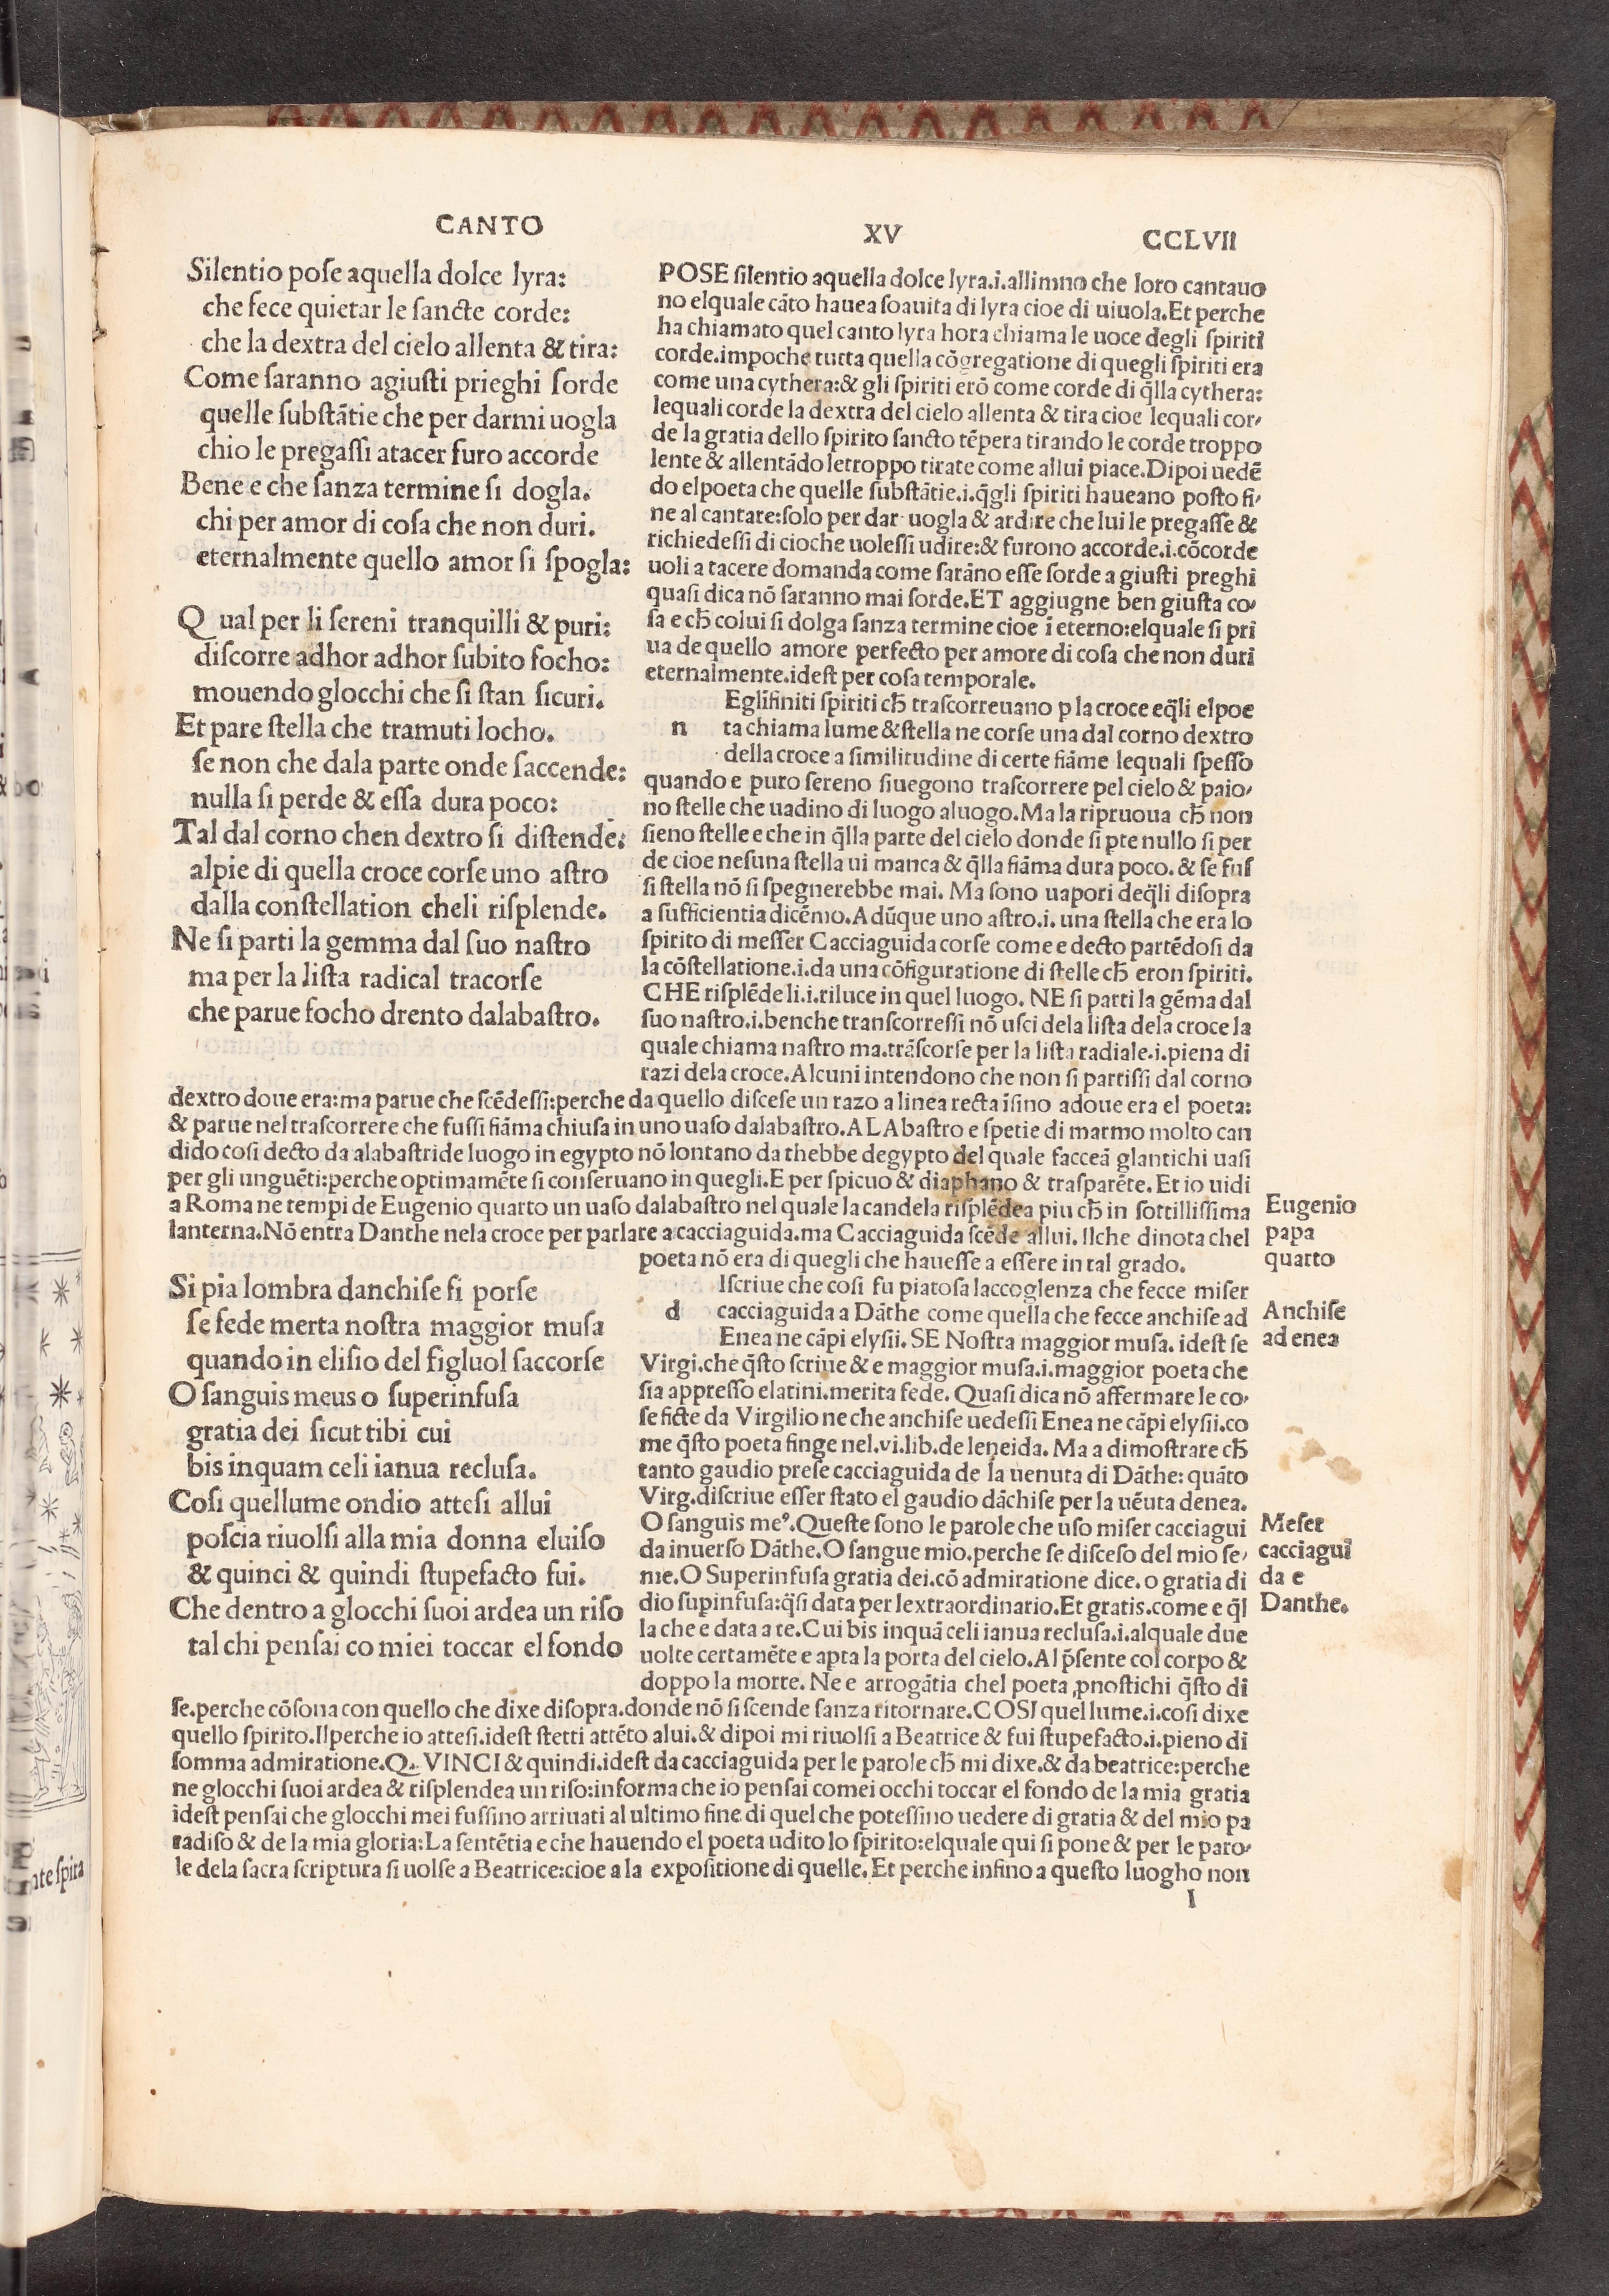 CANTO XV CCLVII
Silentio pose aquella dolce lyra:
che fece quietar le sancte corde:
che la dextra del cielo allenta & tira:
Come saranno agiusti prieghi sorde
quelle substãtie che per darmi uogla
chio le pregassi atacer furo accorde
Bene e che sanza termine si dogla.
chi per amor di cosa che non duri.
eternalmente quello amor si spogla:
Q ual per li sereni tranquilli & puri:
discorre adhor adhor subito focho:
mouendo glocchi che si stan sicuri.
Et pare stella che tramuti locho.
se non che dala parte onde saccende:
nulla si perde & essa dura poco:
Tal dal corno chen dextro si distende:
alpie di quella croce corse uno astro
dalla constellation cheli risplende.
Ne si parti la gemma dal suo nastro
ma per la lista radical tracorse
che parue focho drento dalabastro.
POSE silentio aquella dolce lyra.i.allimno che loro cantauo
no elquale cãto hauea soauita di lyra cioe di uiuola.Et perche
ha chiamato quel canto lyra hora chiama le uoce degli spiriti
corde.impoche tutta quella cõgregatione di quegli spiriti era
come una cythera:& gli spiriti erõ come corde di q̃lla cythera:
lequali corde la dextra del cielo allenta & tira cioe lequali cor/
de la gratia dello spirito sancto tẽpera tirando le corde troppo
lente & allentãdo letroppo tirate come allui piace.Dipoi uedẽ
do elpoeta che quelle substãtie.i.q̃gli spiriti haueano posto fi/
ne al cantare:solo per dar uogla & ardire che lui le pregasse &
richiedessi di cioche uolessi udire:& furono accorde.i.cõcorde
uoli a tacere domanda come sarãno esse sorde a giusti preghi
quasi dica nõ saranno mai sorde.ET aggiugne ben giusta co/
sa e ch̃ colui si dolga sanza termine cioe ĩ eterno:elquale si pri
ua de quello amore perfecto per amore di cosa che non duri
eternalmente.idest per cosa temporale.
Eglĩfiniti spiriti ch̃ trascorreuano p la croce eq̃li elpoe
n ta chiama lume &stella ne corse una dal corno dextro
della croce a similitudine di certe fiãme lequali spesso
quando e puro sereno siuegono trascorrere pel cielo & paio/
no stelle che uadino di luogo aluogo.Ma la ripruoua ch̃ non
sieno stelle e che in q̃lla parte del cielo donde si pte nullo si per
de cioe nesuna stella ui manca & q̃lla fiãma dura poco.& se fus
si stella nõ si spegnerebbe mai. Ma sono uapori deq̃li disopra
a sufficientia dicẽmo.A dũque uno astro.i. una stella che era lo
spirito di messer Cacciaguida corse come e decto partẽdosi da
la cõstellatione.i.da una cõfiguratione di stelle ch̃ eron spiriti.
CHE risplẽde li.i.riluce in quel luogo. NE si parti la gẽma dal
suo nastro.i.benche transcorressi nõ usci dela lista dela croce la
quale chiama nastro ma.trãscorse per la lista radiale.i.piena di
razi dela croce.Alcuni intendono che non si partissi dal corno
dextro doue era:ma parue che scẽdessi:perche da quello discese un razo a linea recta ĩsino adoue era el poeta:
& parue nel trascorrere che fussi fiãma chiusa in uno uaso dalabastro.ALAbastro e spetie di marmo molto can
dido cosi decto da alabastride luogo in egypto nõ lontano da thebbe degypto del quale facceã glantichi uasi
per gli unguẽti:perche optimamẽte si conseruano in quegli.E per spicuo & diaphano & trasparẽte. Et io uidi
a Roma ne tempi de Eugenio quarto un uaso dalabastro nel quale la candela risplẽdea piu ch̃ in sottillissima
lanterna.Nõ entra Danthe nela croce per parlare a cacciaguida.ma Cacciaguida scẽde allui. Ilche dinota chel
poeta nõ era di quegli che hauesse a essere in tal grado.
Eugenio
papa
quarto
Si pia lombra danchise si porse
se fede merta nostra maggior musa
quando in elisio del figluol saccorse
O sanguis meus o superinfusa
gratia dei sicut tibi cui
bis inquam celi ianua reclusa.
Cosi quellume ondio attesi allui
poscia riuolsi alla mia donna eluiso
& quinci & quindi stupefacto fui.
Che dentro a glocchi suoi ardea un riso
tal chi pensai co miei toccar el fondo
Iscriue che cosi fu piatosa laccoglenza che fecce miser
d cacciaguida a Dãthe come quella che fecce anchise ad
Enea ne cãpi elysii. SE Nostra maggior musa. idest se
Virgi.che q̃sto scriue & e maggior musa.i.maggior poeta che
sia appresso elatini.merita fede. Quasi dica nõ affermare le co/
se ficte da Virgilio ne che anchise uedessi Enea ne cãpi elysii.co
me q̃sto poeta finge nel.vi.lib.de leneida. Ma a dimostrare ch̃
tanto gaudio prese cacciaguida de la uenuta di Dãthe: quãto
Virg.discriue esser stato el gaudio dãchise per la uẽuta denea.
O sanguis meꝰ.Queste sono le parole che uso miser cacciagui
da inuerso Dãthe.O sangue mio.perche se disceso del mio se/
me.O Superinfusa gratia dei.cõ admiratione dice. o gratia di
dio supinfusa:q̃si data per lextraordinario.Et gratis.come e q̃l
la che e data a te.Cui bis inquã celi ianua reclusa.i.alquale due
uolte certamẽte e apta la porta del cielo.Al p̃sente col corpo &
doppo la morte. Ne e arrogãtia chel poeta ꝓnostichi q̃sto di
se.perche cõsona con quello che dixe disopra.donde nõ si scende sanza ritornare.COSI quel lume.i.cosi dixe
quello spirito.Ilperche io attesi.idest stetti attẽto alui.& dipoi mi riuolsi a Beatrice & fui stupefacto.i.pieno di
somma admiratione.Q. VINCI & quindi.idest da cacciaguida per le parole ch̃ mi dixe.& da beatrice:perche
ne glocchi suoi ardea & risplendea un riso:informa che io pensai comei occhi toccar el fondo de la mia gratia
idest pensai che glocchi mei fussino arriuati al ultimo fine di quel che potessino uedere di gratia & del mio pa
radiso & de la mia gloria:La sentẽtia e che hauendo el poeta udito lo spirito:elquale qui si pone & per le paro/
le dela sacra scriptura si uolse a Beatrice:cioe a la expositione di quelle. Et perche infino a questo luogho non
Anchise
ad enea
Meser
cacciagui
da e
Danthe.
I
nte spira